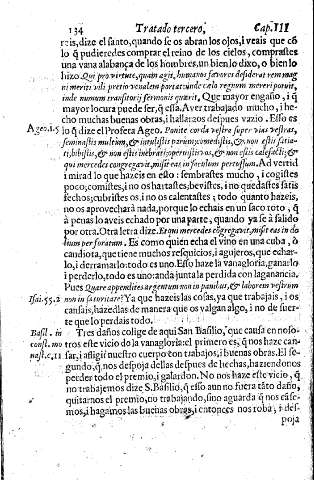 134 Tratado tercero, Cap. III
reis, dize el santo, quando se os abran los ojos, i veais que cõ
lo q̃ pudieredes comprar el reino de los cielos, comprastes
una vana alabança de los hombres, un bien lo dixo, o bien lo
hizo Qui pro virtute, quam agit, humanos favores desiderat rem mag
ni meriti vili pretio venalem portat: unde cælo regnum mereri potuit,
inde nummum transitorij sermonis quærit, Que mayor engaño, i q̃
mayor locura puede ser, q̃ essa. Aver trabajado mucho, i he-
cho muchas buenas obras, i hallaros despues vazio. Esso es
Ageo. 1.5 lo q̃ dize el Profeta Ageo. Ponite corda vestra super vias vestras,
seminastis multum, & intulistis parum; comedistis, & non estis satia-
ti, bibistis, & non estis inebriati; operuistis vos, & non estis calefacti; &
qui mercedes congregavit, misit eas in sacculum pertussum. Ad vertid
i mirad lo que hazeis en esso: sembrastes mucho, i cogistes
poco; comistes, i no os hartastes, bevistes, i no quedastes satis
fechos; cubristes os, i no os calentastes; todo quanto hazeis,
no os aprovechará nada, porque lo echais en un saco roto, q̃
à penas lo aveis echado por una parte, quando ya se à salido
por otra. Otra letra dize. Et qui mercedes congregavit, misit eas in do
lium perforatum. Es como quien echa el vino en una cuba, ò
candiota, que tiene muchos resquicios, i agujeros, que echar-
lo, i derramarlo: todo es uno. Esso haze la vanagloria, ganarlo
i perderlo, todo es uno: anda junta la perdida con la ganancia.
Pues Quare appenditis argentum non in panibus, & laborem vestrum
Isai. 55.2 non in saturitate? Ya que hazeis las cosas, ya que trabajais, i os
cansais, hazed las de manera que os valgan algo, i no de suer-
te que lo perdais todo.
Basil. in Tres daños colige de aqui San Basilio, que causa en noso-
const. mo tros este vicio de la vanagloria: el primero es, q̃ nos haze can-
nast. c. 11 sar, i afligir nuestro cuerpo con trabajos, i buenas obras. El se-
gundo, q̃ nos despoja dellas despues de hechas, haziendonos
perder todo el premio, i galardon. No nos haze este vicio, q̃
no trabajemos dize S. Basilio, q̃ esso aun no fuera tãto daño,
quitarnos el premio, no trabajando, sino aguarda q̃ nos cãse-
mos, i hagamos las buenas obras, i entonces nos roba, i des-
poja